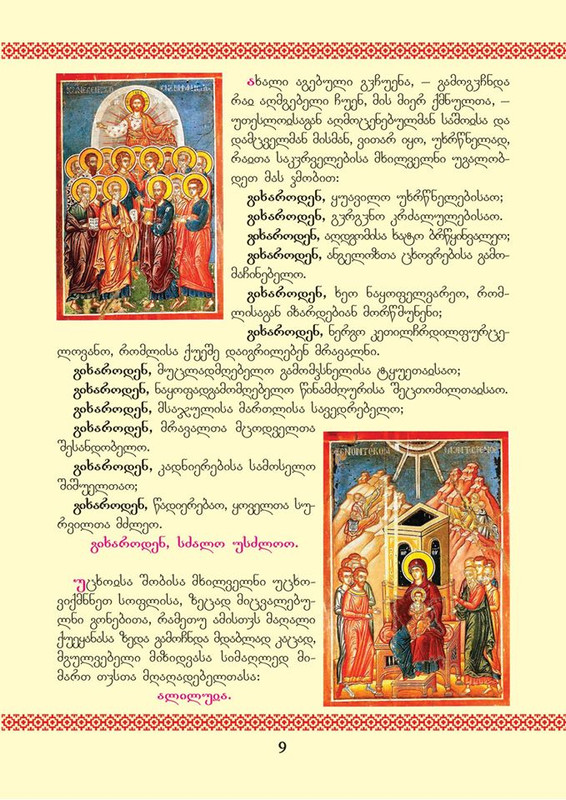 ახალი აგებული გჳჩუენა, – გამოგჳჩნდა
რაჲ აღმგებელი ჩუენ, მის მიერ ქმნულთა, –
უთესლოჲსაგან აღმოცენებულმან საშოჲსა და
დამცველმან მისმან, ვითარ იყო, უხრწნელად,
რაჲთა საკჳრველებისა მხილველნი უგალობ-
დეთ მას ჴმობით:
გიხაროდენ, ყუავილო უხრწნელებისაო;
გიხაროდენ, გჳრგჳნო კრძალულებისაო.
გიხაროდენ, აღდგომისა ხატო ბრწყინვალეო;
გიხაროდენ, ანგელოზთა ცხოვრებისა გამო-
მაჩინებელო.
გიხაროდენ, ხეო ნაყოფელვარეო, რომ-
ლისაგან იზარდებიან მორწმუნენი;
გიხაროდენ, ნერგო კეთილჩრდილფურცე-
ლოვანო, რომლისა ქუეშე დაიგრილებენ მრავალნი.
გიხაროდენ, მუცლადმღებელო გამომჴსნელისა ტყუეთაჲსაო;
გიხაროდენ, ნაყოფადგამომღებელო წინამძღურისა შეცთომილთაჲსაო.
გიხაროდენ, მსაჯულისა მართლისა სავედრებელო;
გიხაროდენ, მრავალთა მცოდველთა
შესანდობელო.
გიხაროდენ, კადნიერებისა სამოსელო
შიშუელთაო;
გიხაროდენ, წადიერებაო, ყოველთა სუ-
რვილთა მძლეო.
გიხაროდენ, სძალო უსძლოო.
უცხოჲსა შობისა მხილველნი უცხო-
ვიქმნნეთ სოფლისა, ზეცად მიცვალებუ-
ლნი გონებითა, რამეთუ ამისთჳს მაღალი
ქუეყანასა ზედა გამოჩნდა მდაბლად კაცად,
მგულვებელი მიზიდვასა სიმაღლედ მი-
მართ თჳსთა მღაღადებელთასა:
ალილუჲა.
9